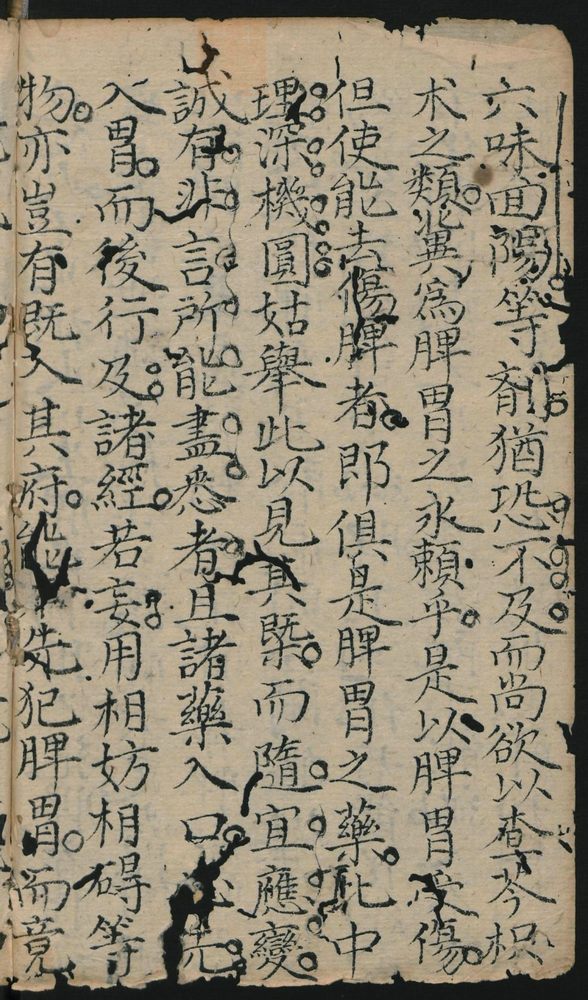 六味囬陽等劑猶恐不及而尚欲以查芩枳
术之類兾為脾胃之永賴乎是以脾胃受傷
但使能去傷脾者即俱是脾胃之藥此中
理深機圓姑舉此以見其槩而隨宜應變
誠有非言所能盡悉者且諸藥入口必先
入胃而後行及諸經若妄用相妨相碍等
物亦豈有既入其府能不先犯脾胃而竟